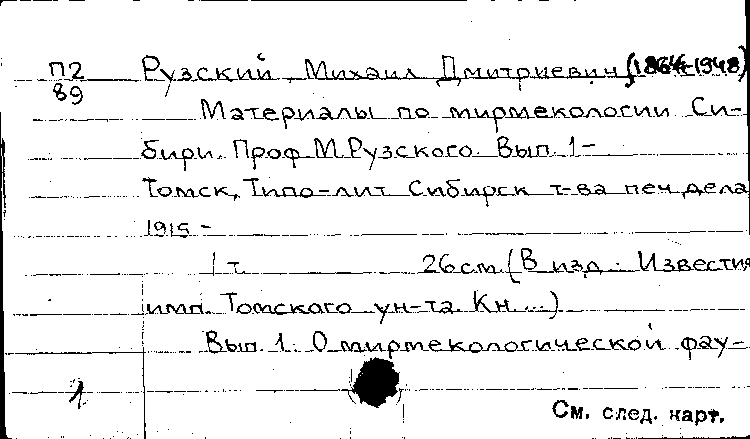 П2 Рузский, Михаил Дмитриевич (1864-1948)
89
Материалы по мирмекологии Си-
бири. Проф. М. Рузского. Вып. 1-
Томск, Типо-лит. Сибирск. т-ва печ. дела
1915 -
1 т. 26 см. (В изд.: Известия
имп. Томского ун-та. Кн. ...)
Вып. 1. О мирмекологической фау-
1
См. след. карт.